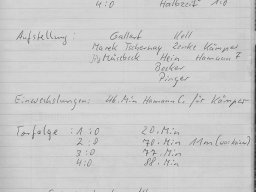 4:0 Halbzeit 1:0
Aufstellung: Gallert Koll
Marek Tschernay Zocke Kämper
Müssbeck Hein Hamann?
Becker
Pinger
Einwechslungen: 46. Min Hamann C. für Kämper
Torfolge: 1:0 20. Min
2:0 70. Min 11m
3:0 77. Min
4:0 88. Min